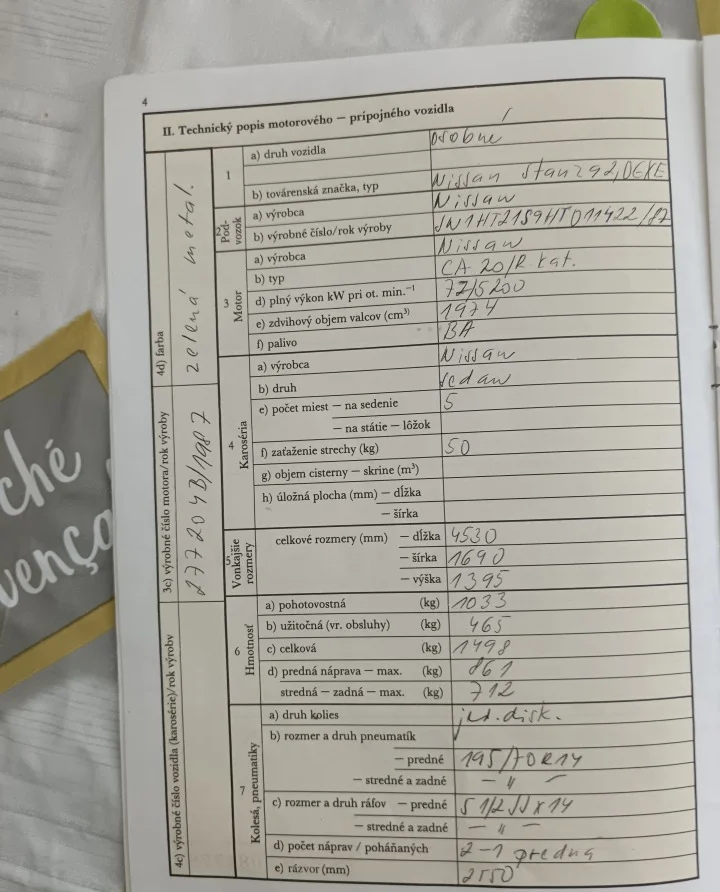 4
II. Technický popis motorového — prípojného vozidla
1
a) druh vozidla osobne
b) továrenská značka, typ Nissan Stanza
2 Pod-
vozok
a) výrobca Nissan
b) výrobné číslo/rok výroby JN1HT21S9HT011422/87
3
Motor
a) výrobca Nissan
b) typ CA 20/R. kat.
d) plný výkon kW pri ot. min.⁻¹ 72/5200
e) zdvihový objem valcov (cm³) 1974
f) palivo BA
4
Karoséria
a) výrobca Nissan
b) druh sedan
e) počet miest — na sedenie 5
— na státie — lôžok
f) zaťaženie strechy (kg) 50
g) objem cisterny — skrine (m³)
h) úložná plocha (mm) — dĺžka
— šírka
5
Vonkajšie
rozmery
celkové rozmery (mm) — dĺžka 4530
— šírka 1690
— výška 1395
6
Hmotnosť
a) pohotovostná (kg) 1033
b) užitočná (vr. obsluhy) (kg) 465
c) celková (kg) 1498
d) predná náprava — max. (kg) 861
stredná — zadná — max. (kg) 712
7
Kolesá, pneumatiky
a) druh kolies jed. disk.
b) rozmer a druh pneumatík
— predné 195/70R14
— stredné a zadné — " —
c) rozmer a druh ráfov — predné 5 1/2 JJ x 14
— stredné a zadné — " —
d) počet náprav / poháňaných 2-1 predna
e) rázvor (mm) 2550
4d) farba zelená metal.
3c) výrobné číslo motora/rok výroby 277204B/1987
4c) výrobné číslo vozidla (karosérie)/rok výroby
ché
venç